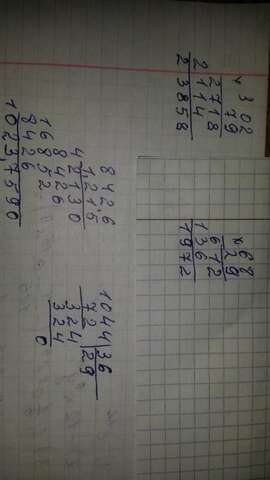 302
× 79
2718
2114
23858
68
× 29
612
136
1972
8426
1215
42130
8426
16852
8426
1023,7590
1044|36
72 |29
324
324
0